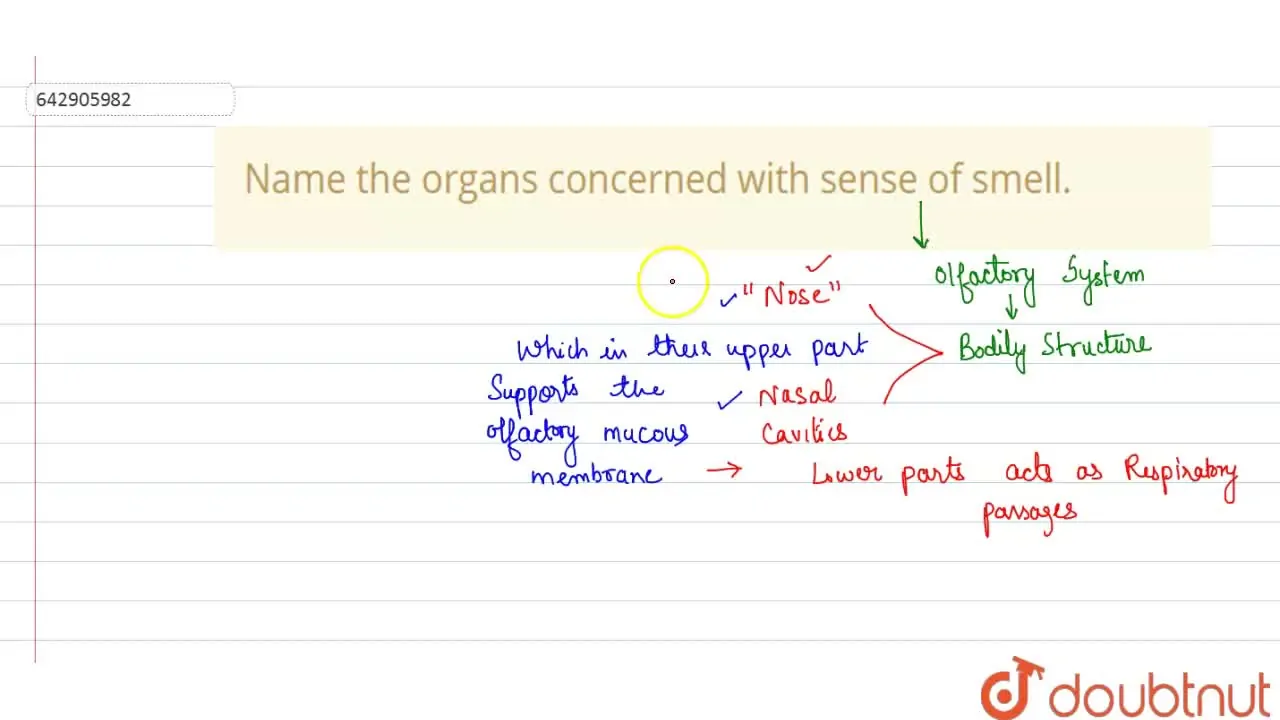 642905982
Name the organs concerned with sense of smell.
Olfactory System
"Nose"
Bodily Structure
Which in their upper part
Supports the
Nasal
olfactory mucous
Cavities
membrane → Lower parts acts as Respiratory
passages
doubtnut